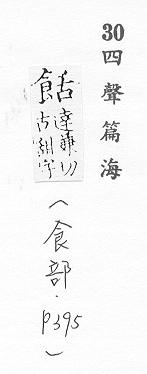 30四聲篇海
餂達兼切
古甜字
（食部．P395）